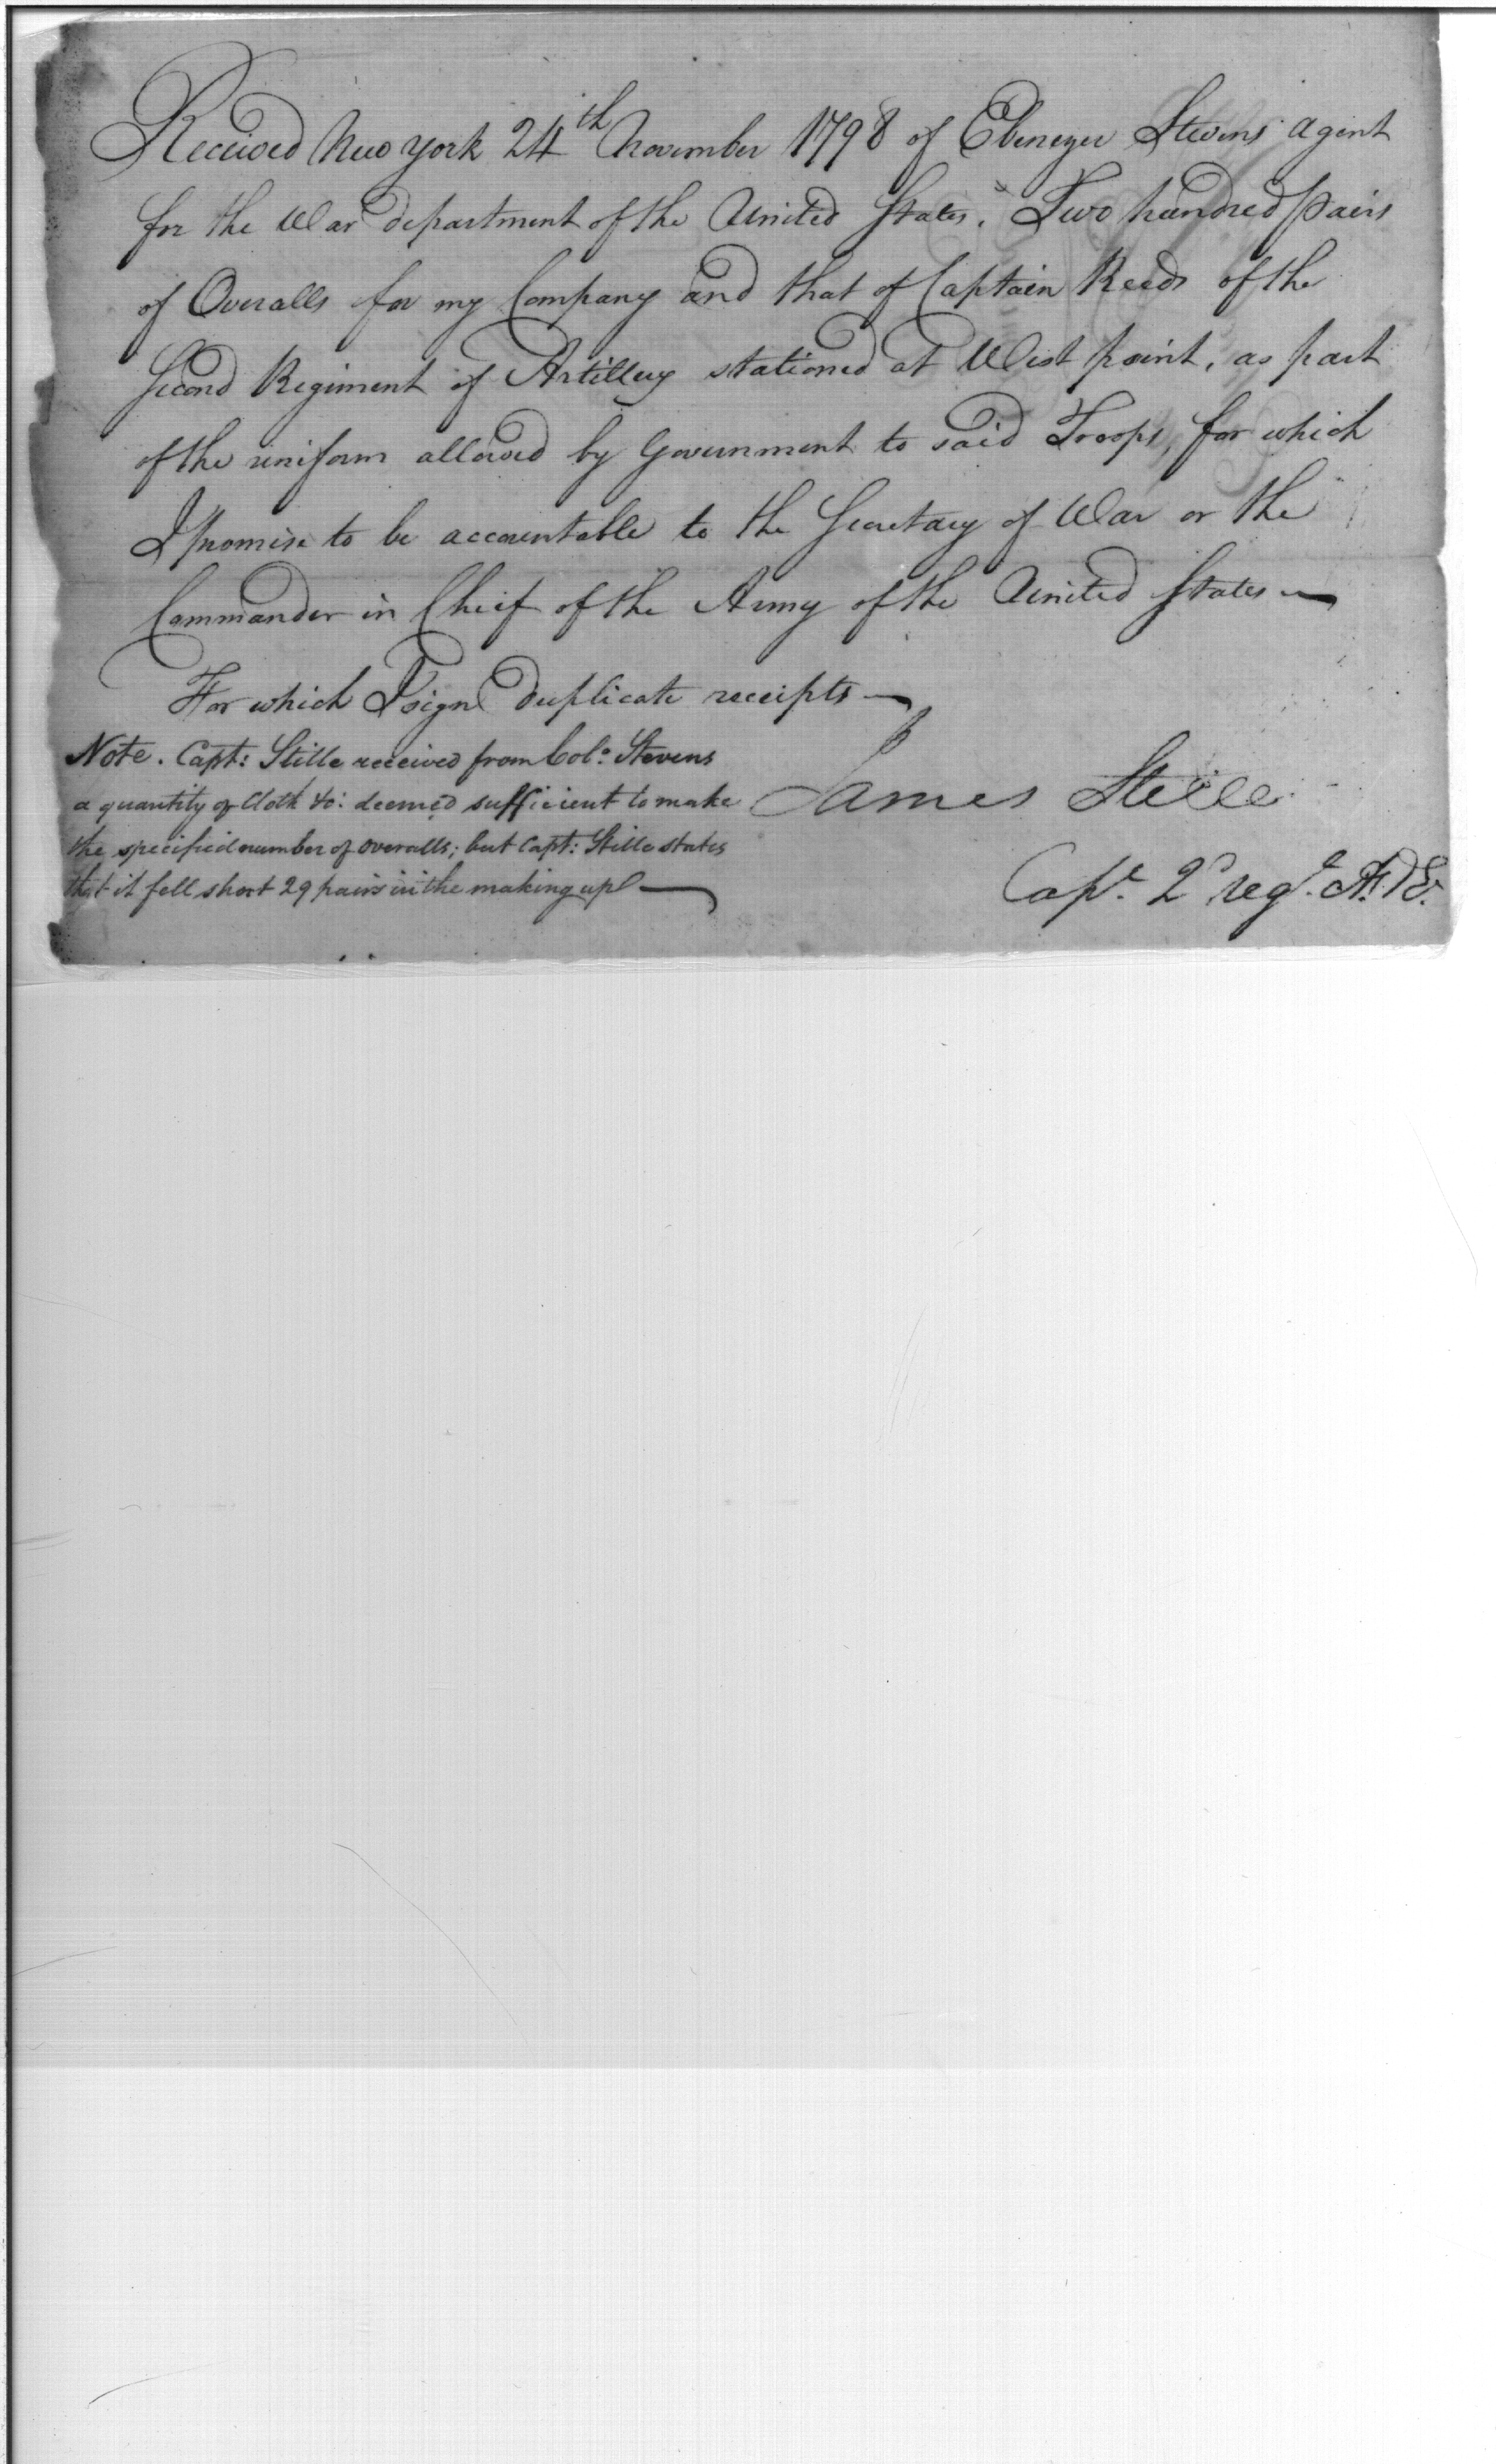 Received New York 24th November 1798 of Ebenezer Stevens agent
for the War department of the United States. Two hundred pairs
of Overalls for my Company and that of Captain Reads of the
Second Regiment of Artillery stationed at West point, as part
of the uniform allowed by Government to said Troops, for which
I promise to be accountable to the Secretary of War or the
Commander in Chief of the Army of the United States —
For which I sign duplicate receipts —
Note. Capt: Stille received from Col.o Stevens
a quantity of Cloth &c: deemed sufficient to make
the specified number of overalls; but Capt: Stille states
that it fell short 29 pairs in the making up —
James Stille
Capt. 2d regt. A. & E.